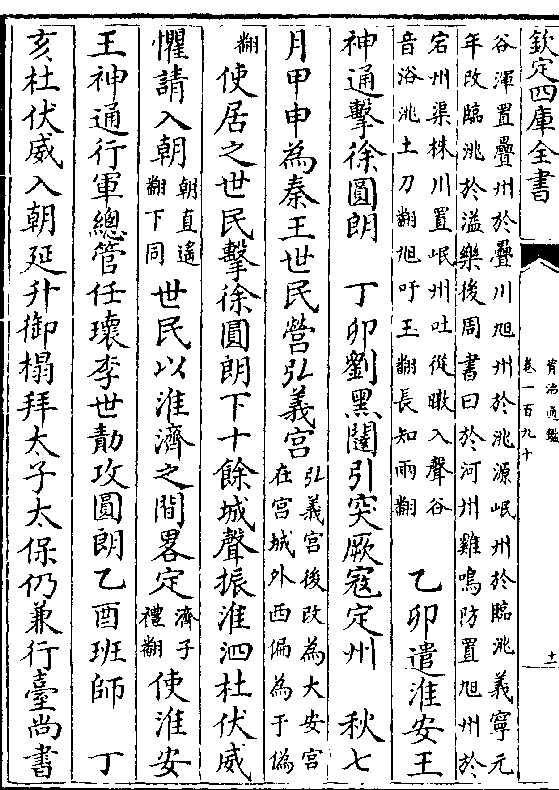 欽定四庫全書
資治通鑑
卷一百九十
十一
谷渾置疊州於疊川旭州於洮源岷州於臨洮義寧元
年改臨洮於溢樂後周書曰於河州雞鳴防置旭州於
宕州渠株川置岷州吐從暾入聲谷
音浴洮土刀翻旭吁玉翻長知兩翻
乙卯遣淮安王
神通擊徐圓朗　丁卯劉黑闥引突厥寇定州　秋七
月甲申為秦王世民營弘義宮
弘義宮後改為大安宮
在宫城外西偏為于偽
翻
使居之世民擊徐圓朗下十餘城聲振淮泗杜伏威
懼請入朝
朝直遥
翻下同
世民以淮濟之間畧定
濟子
禮翻
使淮安
王神通行軍總管任瓌李世勣攻圓朗乙酉班師　丁
亥杜伏威入朝延升御榻拜太子太保仍兼行臺尚書